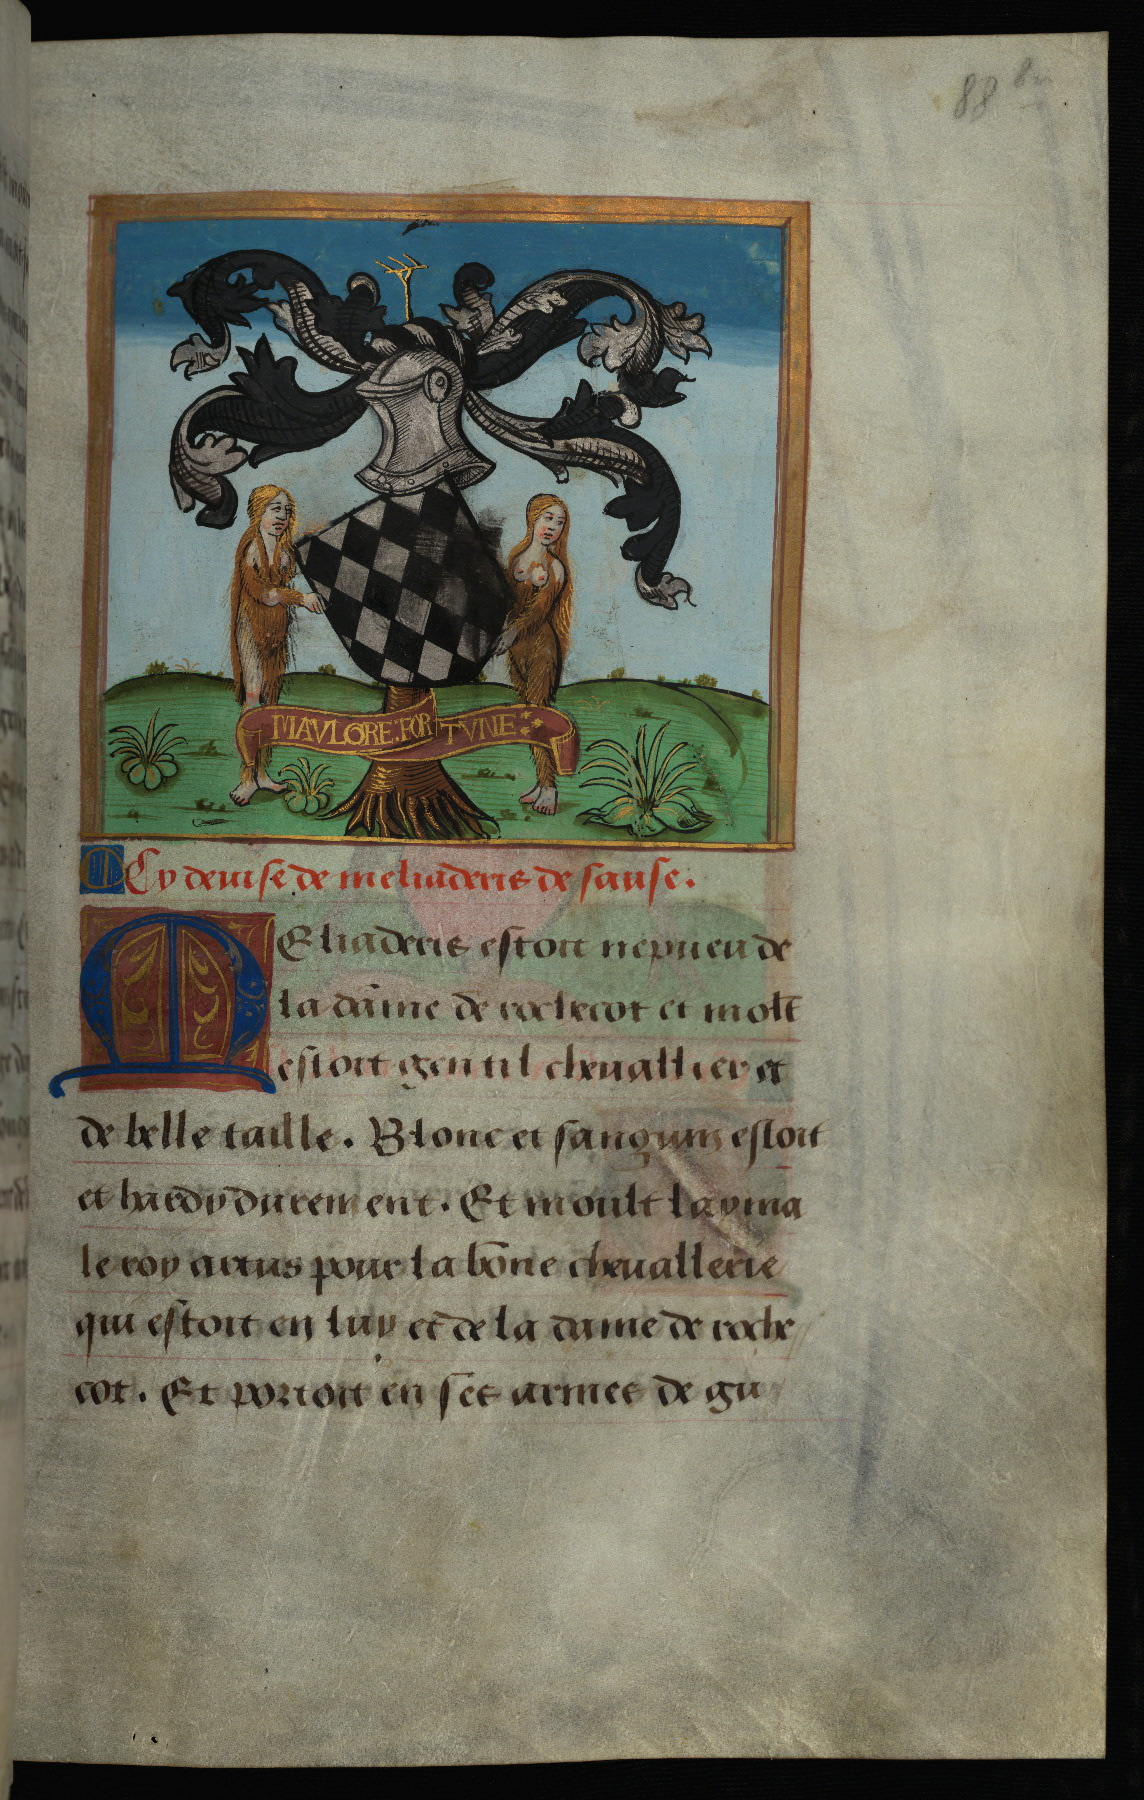 88 bis
MAVLORE: FORTVNE
Cy deuise de meliaderis de sause.
MEliaderis estoit nepueu de
la dame de rochecot et molt
estoit gentil cheuallier et
de belle taille. Blonc et sanguin estoit
et hardy durement. Et moult layma
le roy artus pour la bõne cheuallerie
qui estoit en luy et de la dame de roche
cot. Et portoit en ses armes de gu